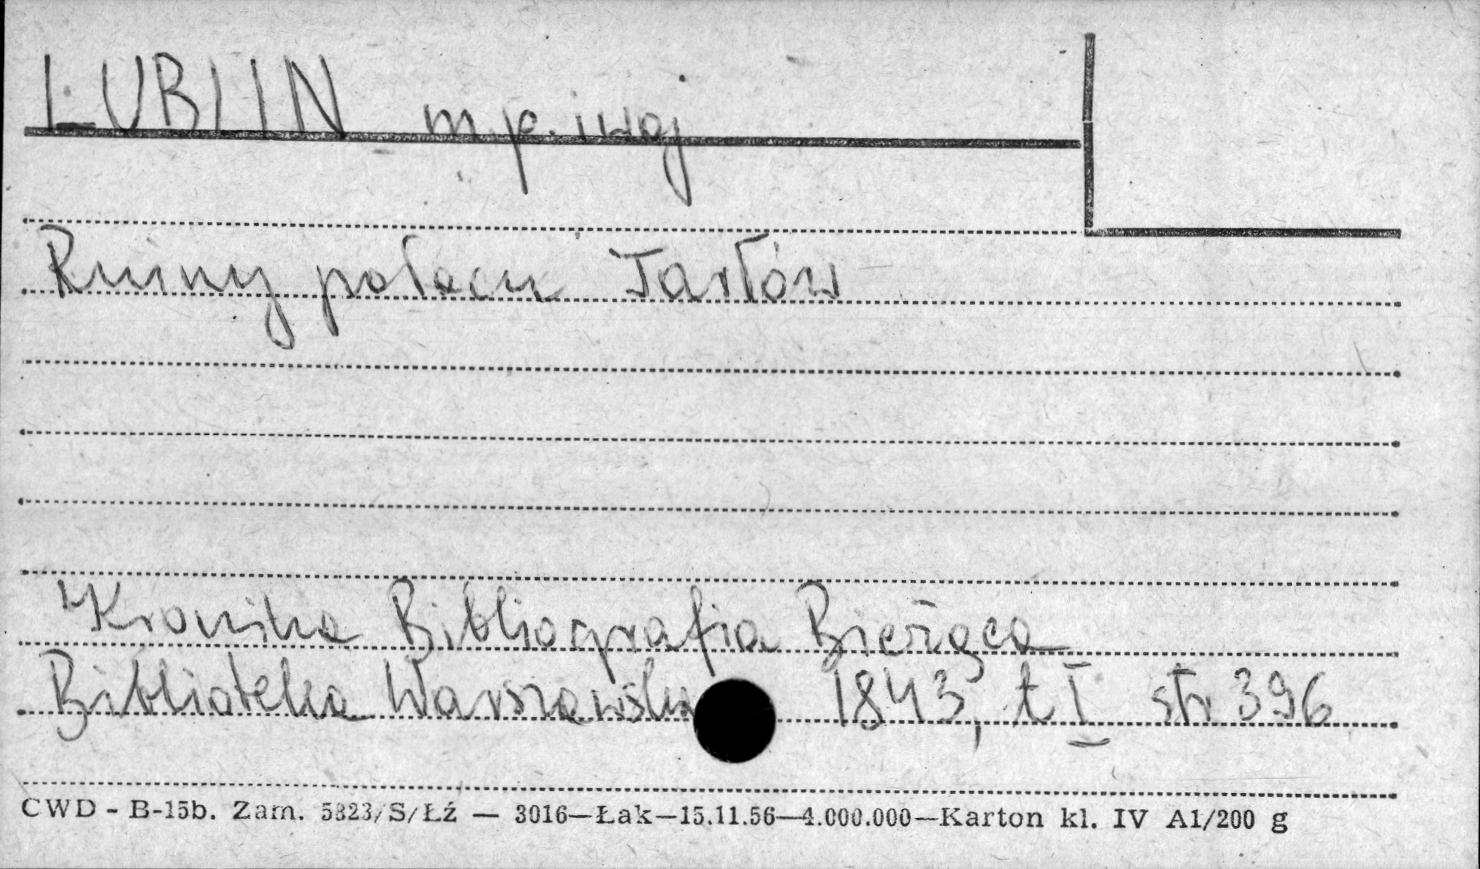 LUBLIN m. p. i woj
Ruiny pałacu Tarłów
Kronika Bibliografia Bieżąca
Biblioteka Warszawska 1843, t I str 396
CWD - B-15b. Zam. 5823/S/Łź — 3016—Łak—15.11.56—4.000.000—Karton kl. IV A1/200 g